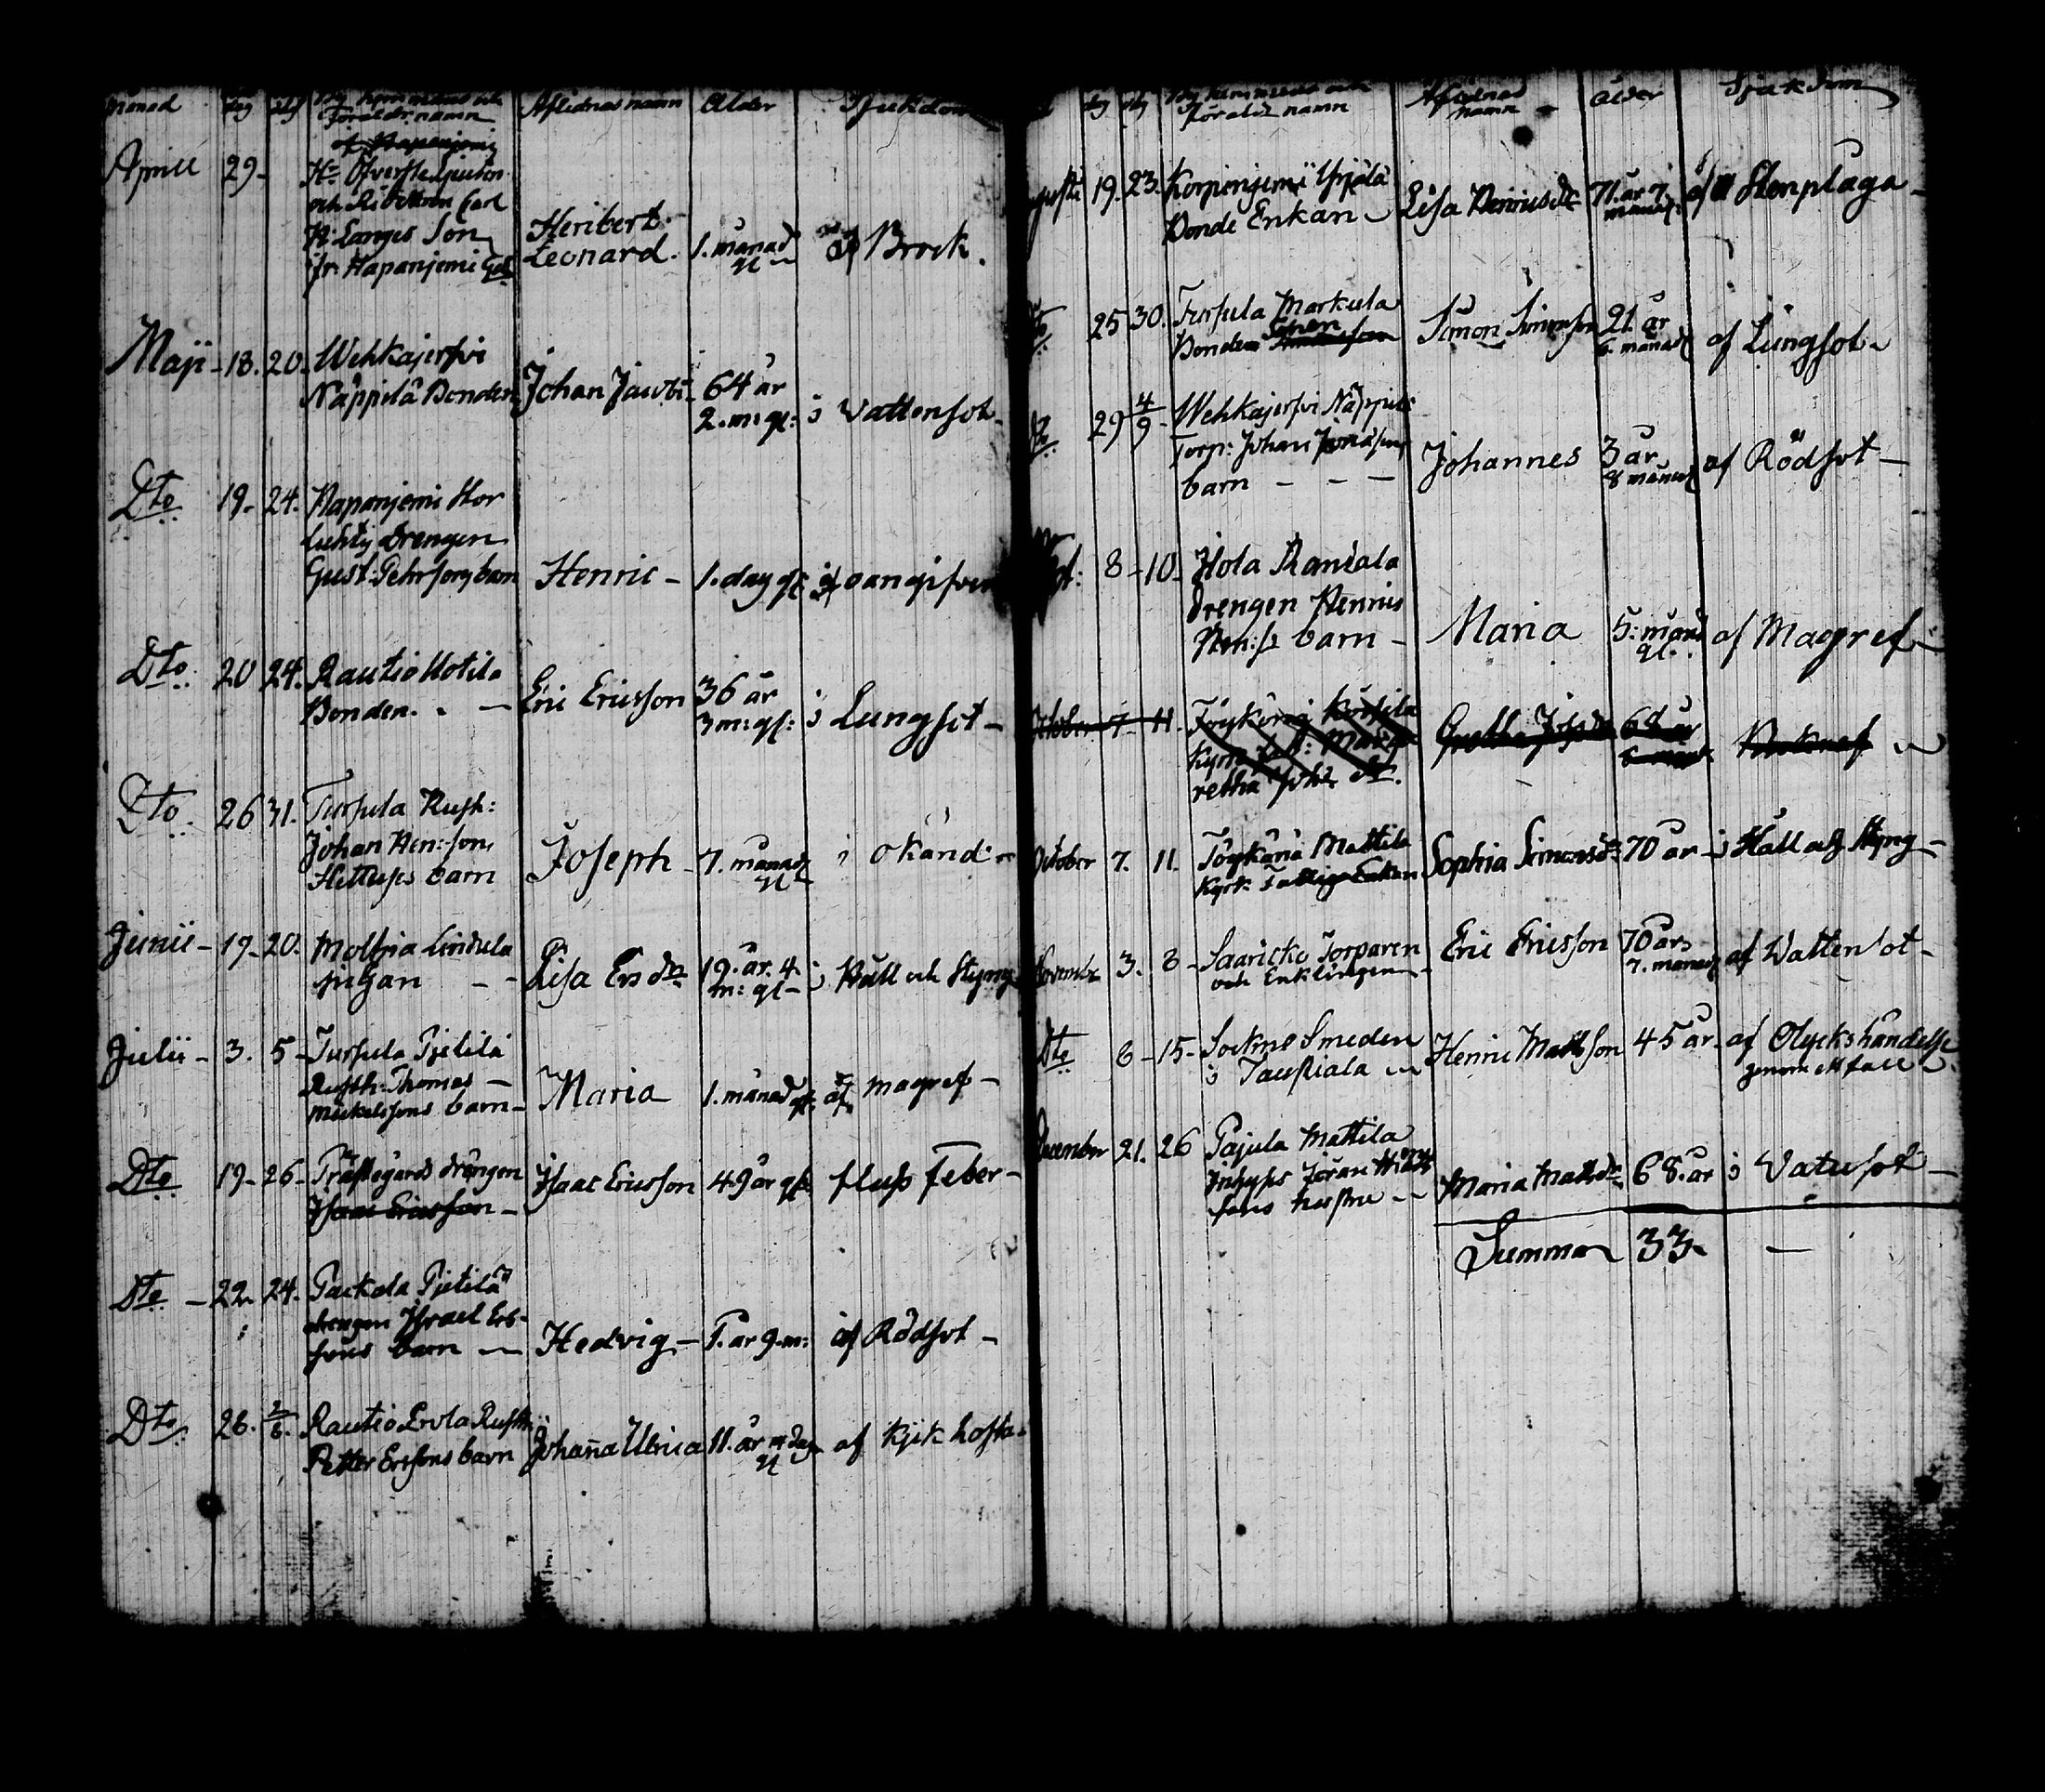 Månad dag dag
Föräldr. namn Aflednas namn Ålder Sjukdom
af Hapanjemi
Aprill 29. Hr Öfverste Lieutn.
och Riddaren Carl
H. Langes Son Heribert
fr. Hapanjemi Leonard. 1. månad gl af Brock.
Maji 18. 20. Wehkajerfvi
Näppilä Bonden Johan Jacobs. 64 år
2. m: gl: i Vattensot
Dto 19. 24. Hapanjemi Stor
Luhty Drengen
Gust. Pehrsons barn Henric 1. dag gl: af oangifven
Dto. 20 24. Rautio Uotila
Bonden. Eric Ericsson 36 år
3 m: gl: i Lungsot
Dto 26 31. Tursula Rusth:
Johan Hen:sons
barn Joseph 7. månad gl i okänd
Junii 19. 20. Moltzia Lindula
pigan Lisa Ersdr 19. år. 4.
m: gl i Håll och Styng
Julii 3. 5 Tursula Pjetilä
Rusth: Thomas
Mickelssons barn Maria 1. månad gl: af magref
Dto 19. 26 Prästegårds drängen Isaac Ericsson 49 år gl fluss feber
Isaac Ericsson
Dto. 22. 24. Packala Pjetilä
drengen Israel Ers-
sons barn Hedvig 1. år 9. m: af Rödsot
Dto. 26. 2/8. Rautio Ervla Rusth:
Petter Ersons barn Johana Ulrica 11. år dag gl af kjikhosta
dag dag
Föräld namn Aflednas namn ålder Sjukdom
19. 23. Korpenjemi Yrjälä
Bonde Enkan Lisa Henricsdr 71. år 7 månad: af Stenplåga
Dto 25 30. Tursula Markula
Bonden Sonen Simon Simonson 21. år
6. månad af Lungsot
Dto 29 4/9 Wehkajerfvi Näppilä
Torp: Johan
barn Johannes 3 år
8 månad af Rödsot
8 10. Hola
drengen Henric
Hen:s barn Maria 5: månd gl. af Magref
October 7 11.
October 7. 11. Töykänä Mattila
Kyrk: fattige Enkan Sophia Simonsdr 70 år i Håll och Styng
November 3. 8 Saaricko Torparen
och Enklingen Eric Ericsson 70 år
7. månad af Wattensot
Dto 6 15 Sockne Smeden
i Tauriala Henric Mattsson 45 år af Olyckshändelse
genom ett fall
December 21. 26 Pajula Mattila
Inhyses Jöran
sons hustru Maria Matsdr 68. år i Vatusot
Summa 33